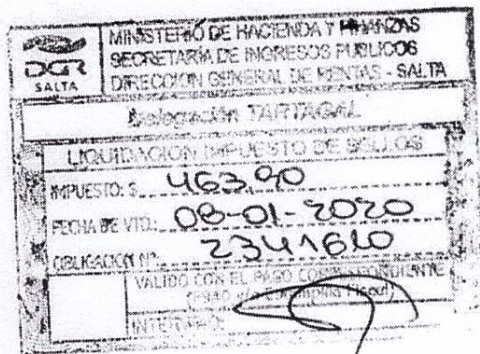 MINISTERIO DE HACIENDA Y FINANZAS
SECRETARÍA DE INGRESOS PUBLICOS
DIRECCION GENERAL DE RENTAS - SALTA
DGR
SALTA
Delegación TARTAGAL
LIQUIDACION IMPUESTO DE SELLOS
IMPUESTO: $ 463.90
FECHA DE VTO.: 08-01-2020
OBLIGACION Nº: 2341610
VALIDO CON EL PAGO CORRESPONDIENTE
Fiscal)